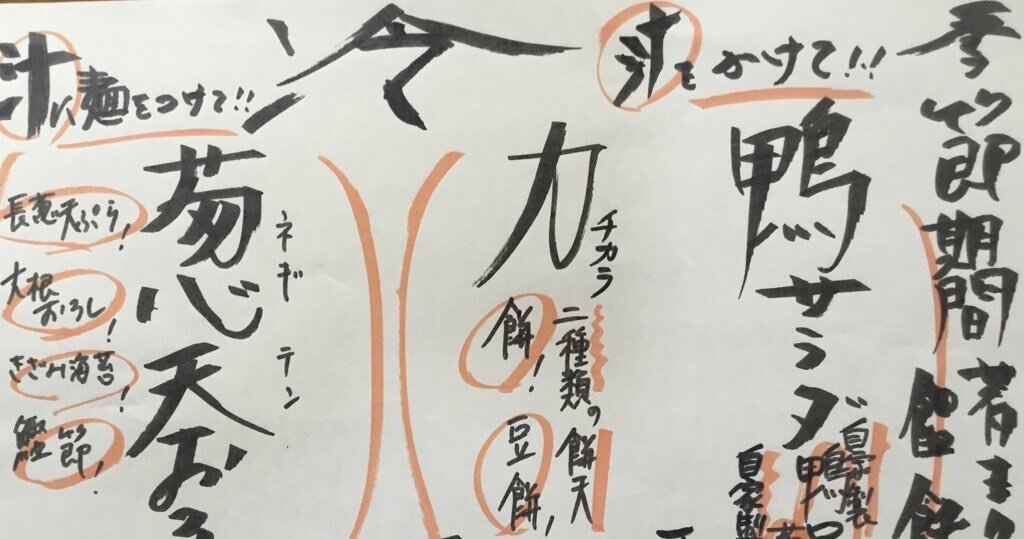 季節期間
冷
汁をかけて!!
鴨サラダ
自家製
自家製
力
チカラ
二種類の餅天
餅!
豆餅!
汁に麺をつけて!!
ネギ
テン
葱天おろ
天ぷら!
大根おろし!
きざみ海苔!
鰹節!